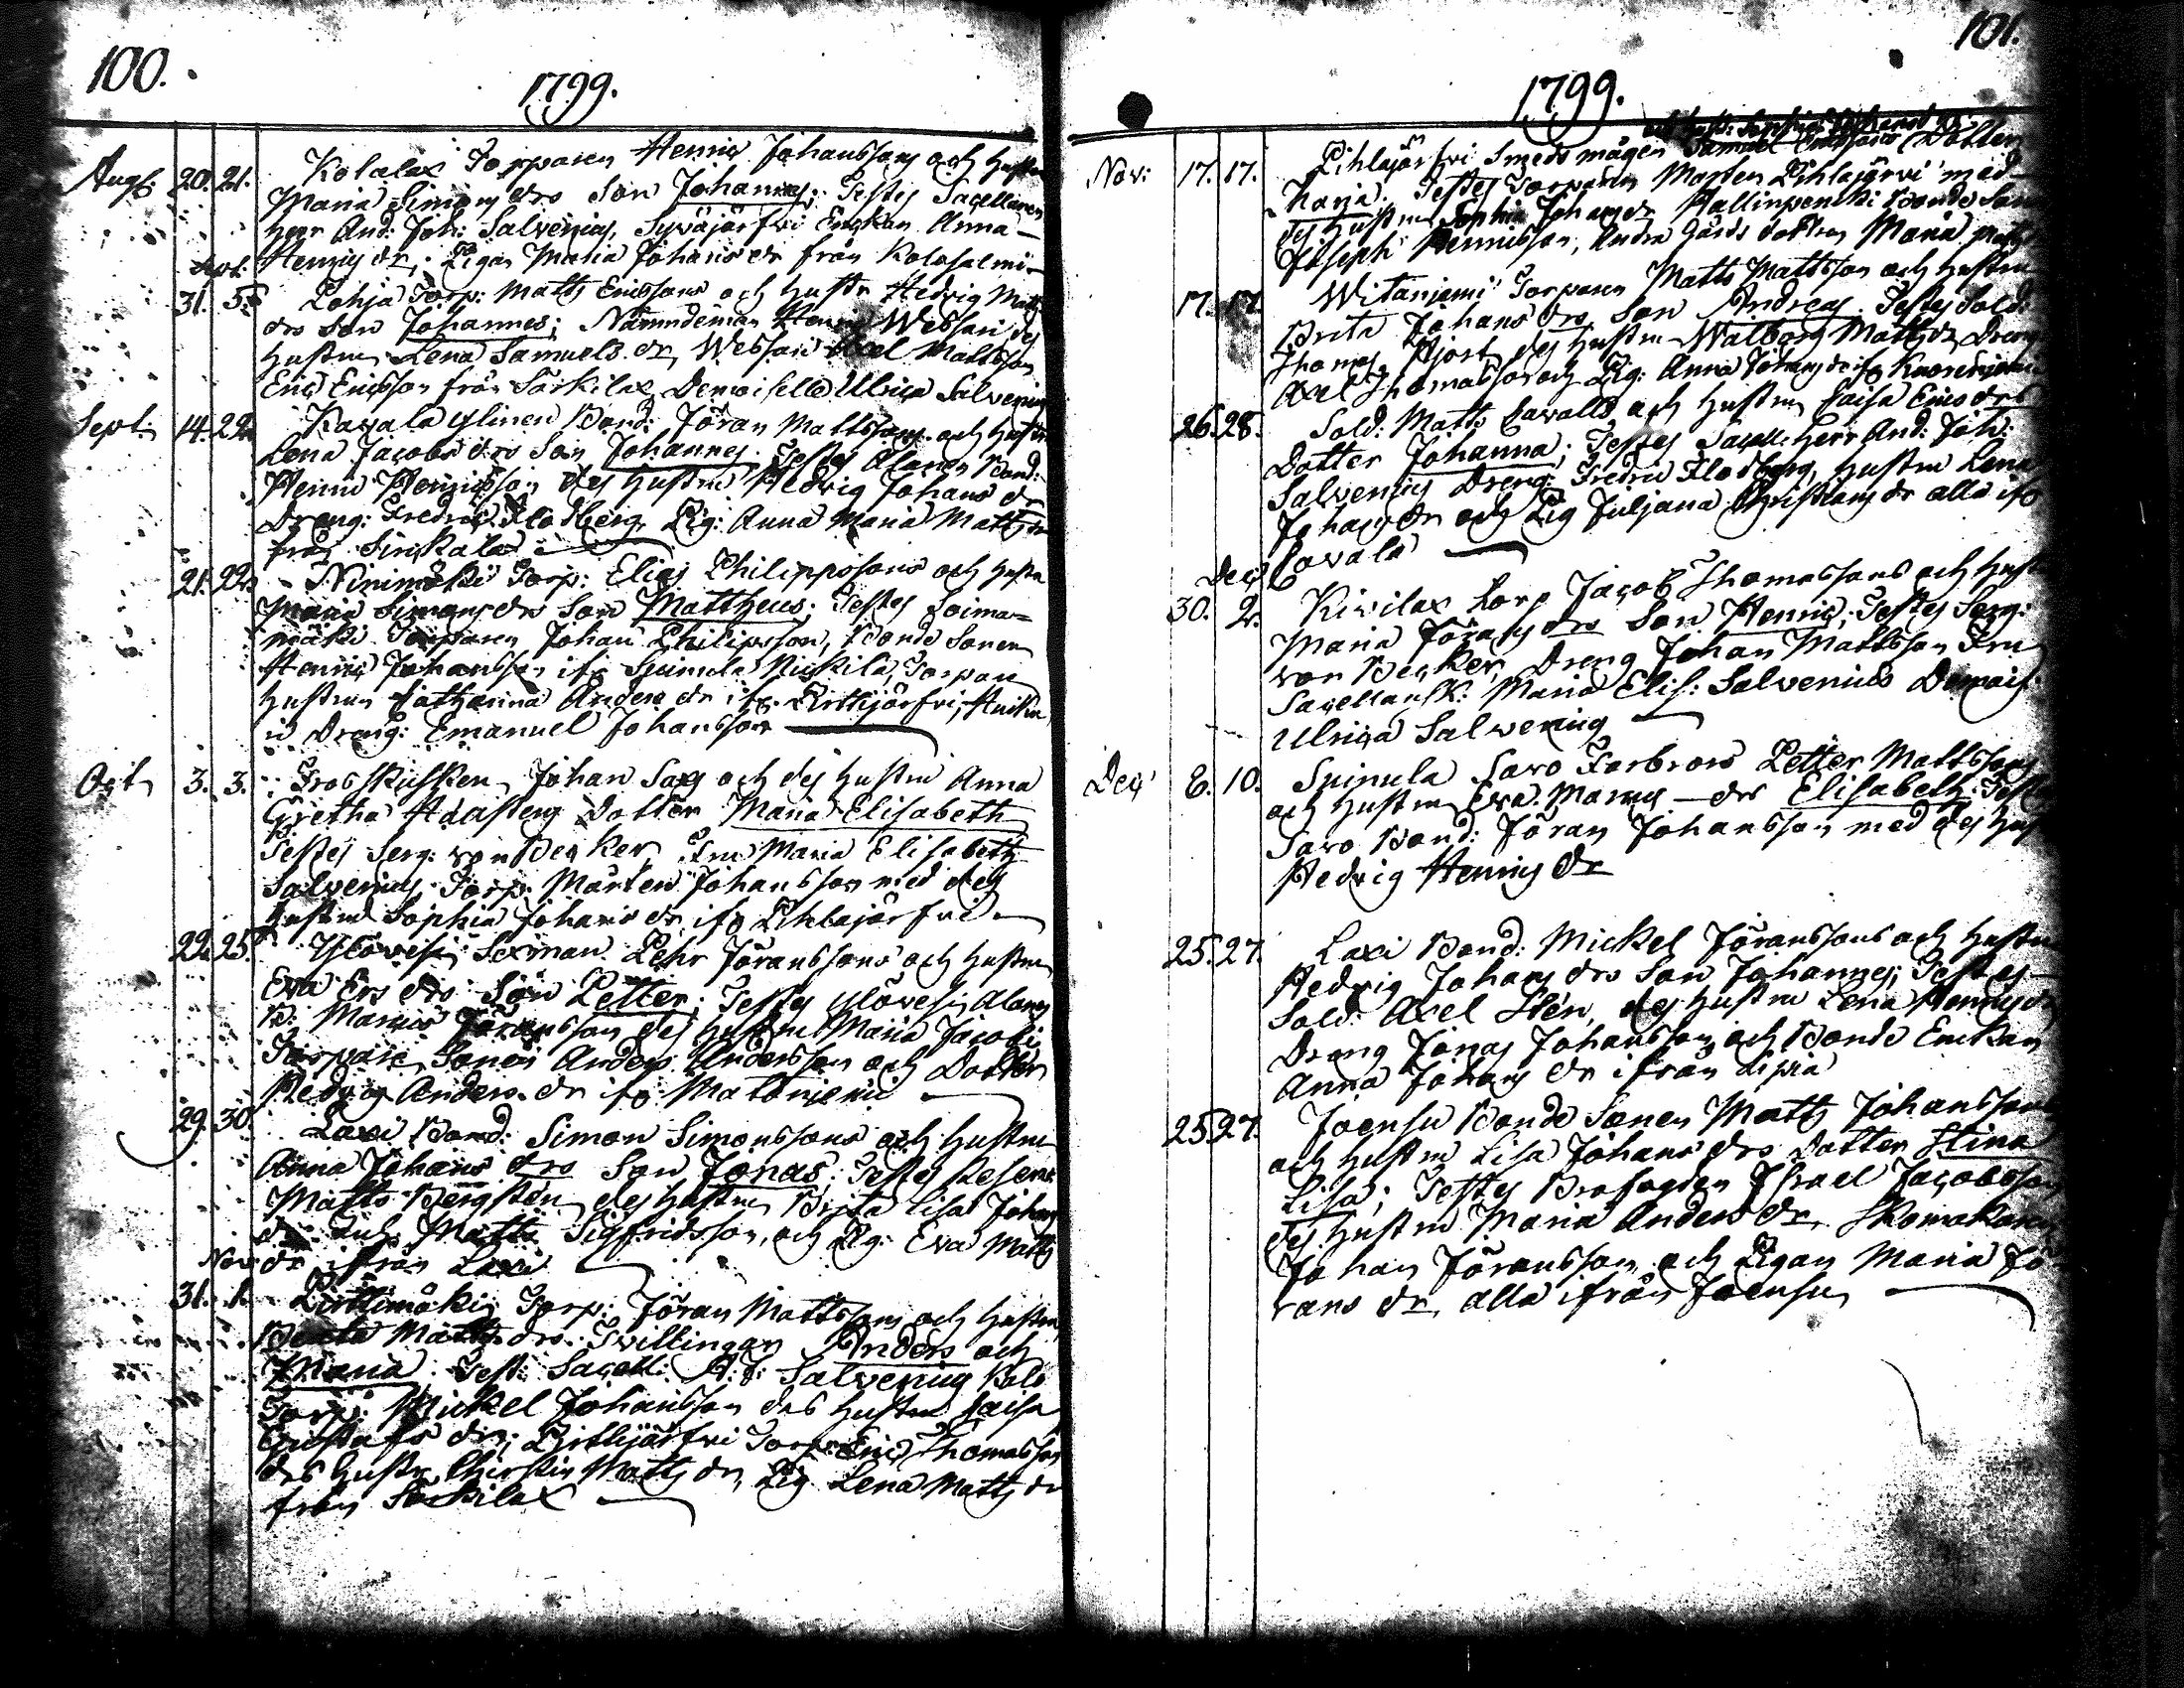 100.
1799.
Augs: 20. 21. Kolalax Torparen Henric Johanssons och hustru
Maria Simons drs Son Johannes; Testes Sacellanen
Herr And: Joh: Salvenius, Syväjärfvi Enckan Anna
Henrics dr, Pigan Maria Johans dr från Kolasalmi
Sept:
31. 5. Pohja Torp: Matts Ericssons och hustr Hedvig Matts
drs Son Johannes; Nämndeman Henric Websari des
hustru Lena Samuels dr, Websari Axel Mattsson
Eric Ericsson från Särkilax Demoiselle Ulrica Salvenius
Sept: 14. 22. Kayala Ylinen Bond: Jöran Mattssons och hustru
Lena Jacobs drs Son Johannes. Testes Alanen Bond:
Henric Henricsson des hustru Hedvig Johans dr
Dreng: Fredric Flodberg, Pig: Anna Maria Matts dr
från Sirckala
21. 22. Ninimäki Torp: Elias Philippssons och hustru
Maria Simons drs Son Mattheus; Testes Loima-
mäki Torparen Johan Philipsson, Bonde Sonen
Henric Johansson ifr Spinula Nickila, Torpare
hustrun Catharina Anders dr ifr Pirttijärfvi,
Dreng: Emanuel Johansson
Oct 3. 3. Johan Sax och des hustru Anna
Gretha Dotter Maria Elisabeth
Testes Serg: von Becker, Fru Maria Elisabeth
Salvenius, Torp: Mårten Johansson med des
hustru Sophia Johans dr ifr Pihlajärfvi
22. 25. Ylövesi Sexman Pehr Jöranssons och hustru
Eva Ers drs Son Petter; Testes Ylövesi Alanen
B: Marcus Jöransson des hustru Maria Jacobs
Torpare Sonen Anders Andersson och Dotter
Hedvig Anders dr ifr Matoniemi
29. 30. Laxi Bond: Simon Simonssons och hustru
Anna Johans drs Son Jonas; Testes Reserv
Matts Bergsten des hustru Brita Lisa Johans
dr Matts Sigfridsson, och Pig: Eva Matts
Nov: dr ifrån Laxi
31. 1. Pirttimäki Torp: Jöran Mattssons och hustru
Beata Matts drs Tvillingar Anders och
Maria; Test: Sacell: A: J: Salvenius
Torp: Mickel Johansson des hustru Caisa
Gustafs dr; Pirttijärfvi Torp: Eric Thomasson
des hustru Christin Matts dr, Pig: Lena Matts dr
från Särkilax
101.
1799.
och hust: Sophia Johans drs
Nov: 17. 17. Pihlajärfvi Smeds mågen Samuel Dotter
Maria. Testes Torparen Mårten Pihlajärvi med
des hustru Sophia Johans dr Hallinpenski Bonde Son
Joseph Henricsson, Andra Gårds dottren Maria Matts
17. 17. Witaniemi Torparen Matts Mattsson och hustru
Brita Johans drs Son Andreas. Testes Sold:
Thomas Hjort, des hustru Walborg Matts dr, Dreng
Axel Thomasson och Pig: Anna Johans dr ifr
26. 28. Sold: Matts Cavalls och hustru Caisa Erics drs
Dotter Johanna; Testes Sacell: Herr And: Joh:
Salvenius Dreng: Fredric Flodberg, hustru Lena
Johans dr och Pig Juljana Christians dr alla ifr
Cavala
Dec:
30. 2. Kivilax Torp Jacob Thomassons och hustr
Maria Jörans drs Son Henric; Testes Serg:
von Becker, Dreng Johan Mattsson Fru
Sacellansk: Maria Elis: Salvenius Demois:
Ulrica Salvenius
Dec: 6. 10. Spinula Savo Farbrors Petter Mattssons
och hustru Eva Marcus drs Elisabeth; Testes
Savo Bond: Jöran Johansson med des hust
Hedvig Henrics dr
25. 27. Laxi Bond: Mickel Jöranssons och hustru
Hedvig Johans drs Son Johannes; Testes
Sold: Axel Stén, des hustru Lena Henrics dr
Dreng Jonas Johansson och Bonde Enckan
Anna Johans dr ifrån Lipia
25. 27. Joensu Bonde Sonen Matts Johanssons
och hustru Lisa Johans drs Dotter Stina
Lisa; Testes Brofogden Israel Jacobsson
des hustru Maria Anders dr, Skomakaren
Johan Jöransson och Pigan Maria Jö-
rans dr, alla ifrån Joensu